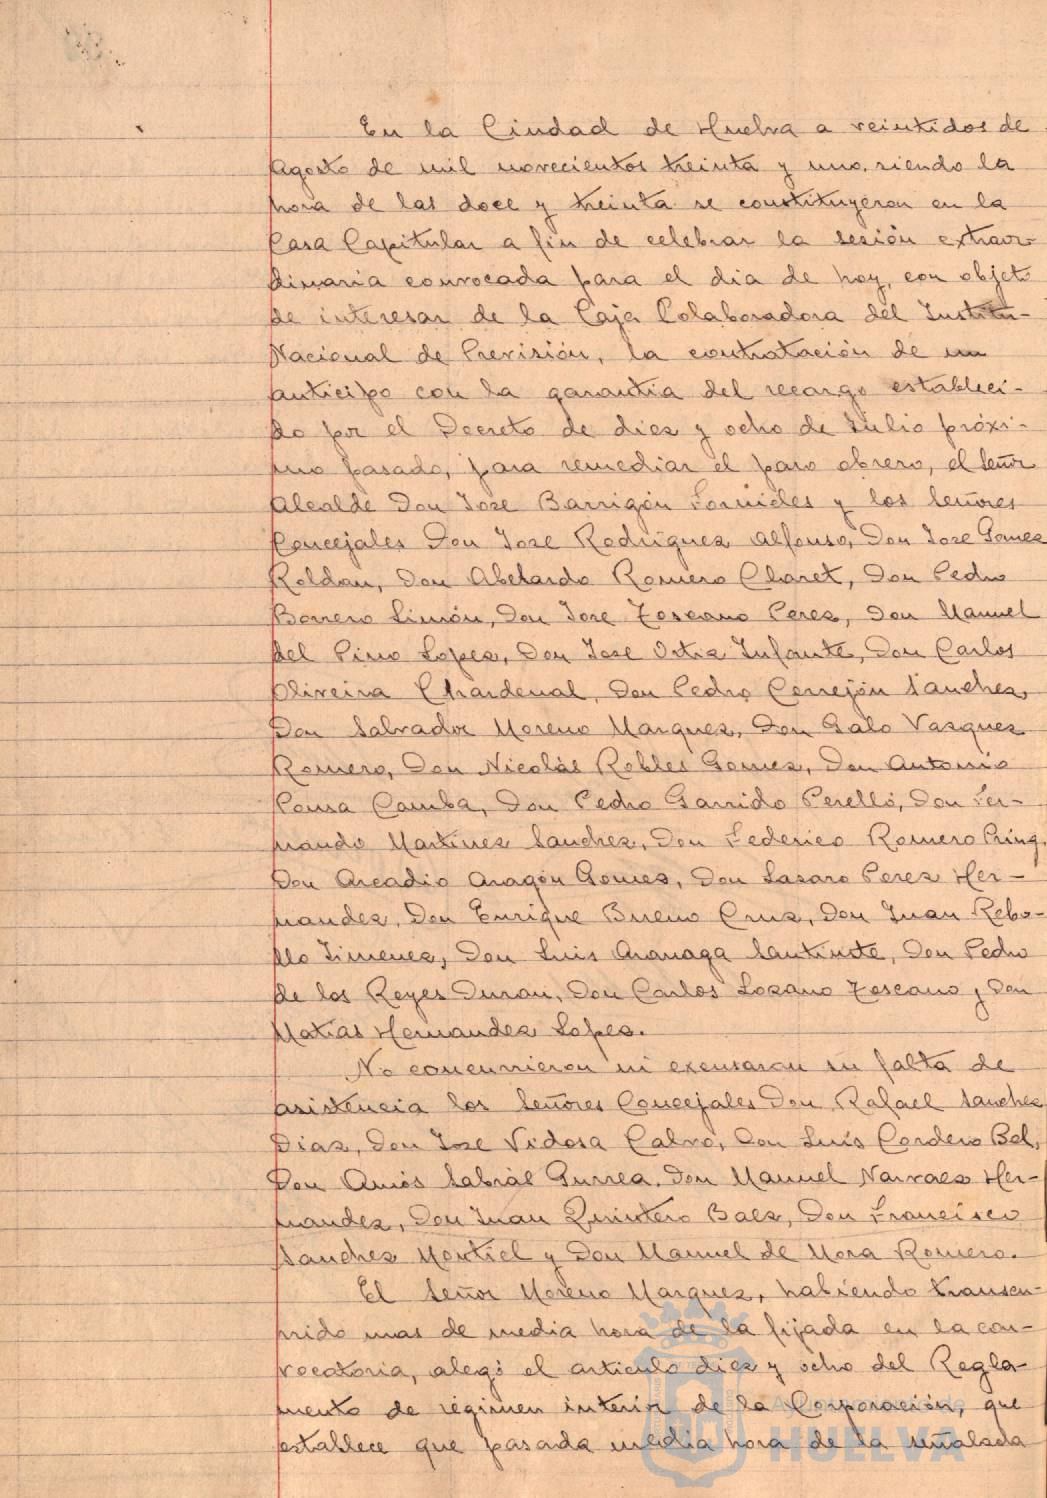 En la Ciudad de Huelva a veintidos de
Agosto de mil novecientos treinta y uno, siendo la
hora de las doce y treinta se constituyeron en la
Casa Capitular a fin de celebrar la sesión extraor-
dinaria convocada para el dia de hoy, con objeto
de interesar de la Caja Colaboradora del Institu-
Nacional de Previsión, la contratación de un
anticipo con la garantia del recargo estableci-
do por el Decreto de diez y ocho de Julio próxi-
mo pasado, para remediar el paro obrero, el Señor
Alcalde Don Jose Barrigón Fornieles y los Señores
Concejales Don Jose Rodriguez Alfonso, Don Jose Gomez
Roldan, Don Abelardo Romero Claret, Don Pedro
Borrero Limón, Don Jose Toscano Perez, Don Manuel
del Pino Lopez, Don Jose Ortiz Infante, Don Carlos
Oliveira Chardenal, Don Pedro Cerrejón Sanchez,
Don Salvador Moreno Marquez, Don Galo Vazquez
Romero, Don Nicolás Robles Gomez, Don Antonio
Pousa Camba, Don Pedro Garrido Perelló, Don Fer-
nando Martinez Sanchez, Don Federico Romero Pring,
Don Arcadio Aragón Gomez, Don Lazaro Perez Her-
nandez, Don Enrique Bueno Cruz, Don Juan Rebo-
llo Jimenez, Don Luis Aranaga Don Pedro
de los Reyes Duran, Don Carlos Lozano Toscano y Don
Matias Hernandez Lopez.
No concurrieron ni excusaron su falta de
asistencia los Señores Concejales Don Rafael Sanchez
Diaz, Don Jose Vidosa Calvo, Don Luis Cordero Bel,
Don Amós Sabrás Gurrea, Don Manuel Narvaez Her-
nandez, Don Juan Quintero Baez, Don Francisco
Sanchez Montiel y Don Manuel de Mora Romero.
El Señor Moreno Marquez, habiendo transcu-
rrido mas de media hora de la fijada en la con-
vocatoria, alegó el articulo diez y ocho del Regla-
mento de régimen interior de la Corporación, que
establece que pasada media hora de la señalada
Ayuntamiento de
HUELVA